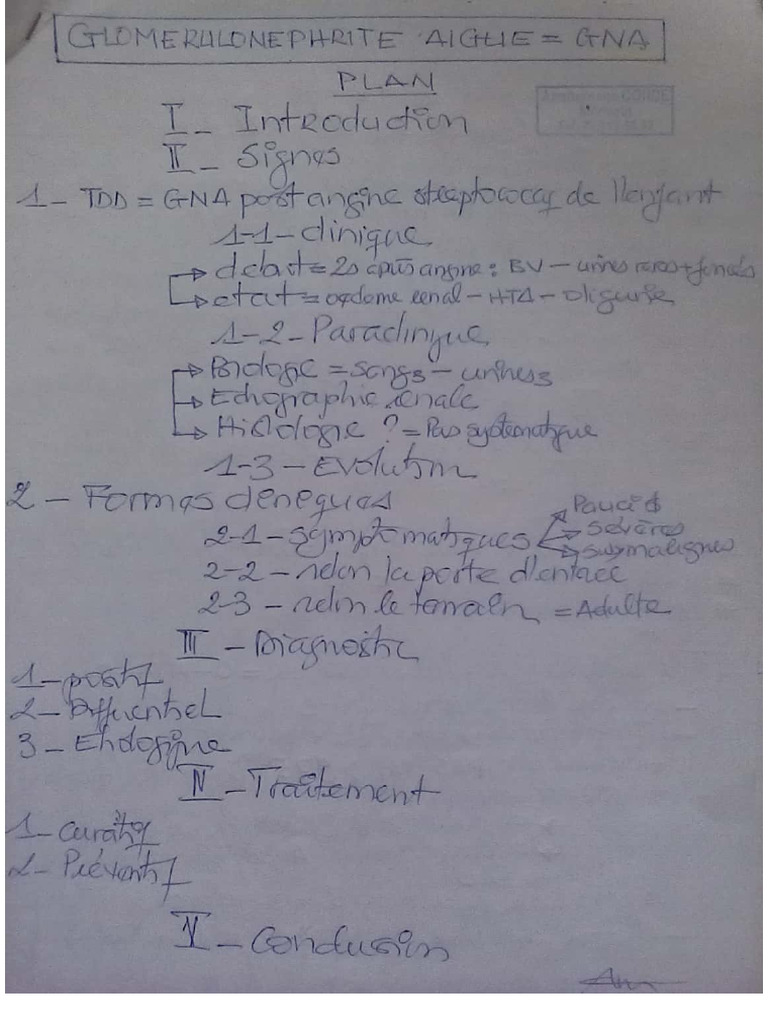 GLOMERULONEPHRITE AIGUE = GNA
PLAN
I - Introduction
II - Signes
1 - TDD = GNA post angine streptococcq de l'enfant
1-1 - clinique
debut = 20 après angine : BV - urines rares + foncées
etat = oedème renal - HTA - oligurie
1-2 - Paraclinique
Biologie = sang3 - urines3
Echographie rénale
Histologie ? = Pas systematique
1-3 - Evolution
2 - Formes cliniques
2-1 - symptomatiques
sévères
submalignes
2-2 - selon la porte d'entrée
2-3 - selon le terrain = Adulte
III - Diagnostic
1 - positif
2 - Differentiel
3 - Etiologique
IV - Traitement
1 - curatif
2 - Préventif
V - Conclusion